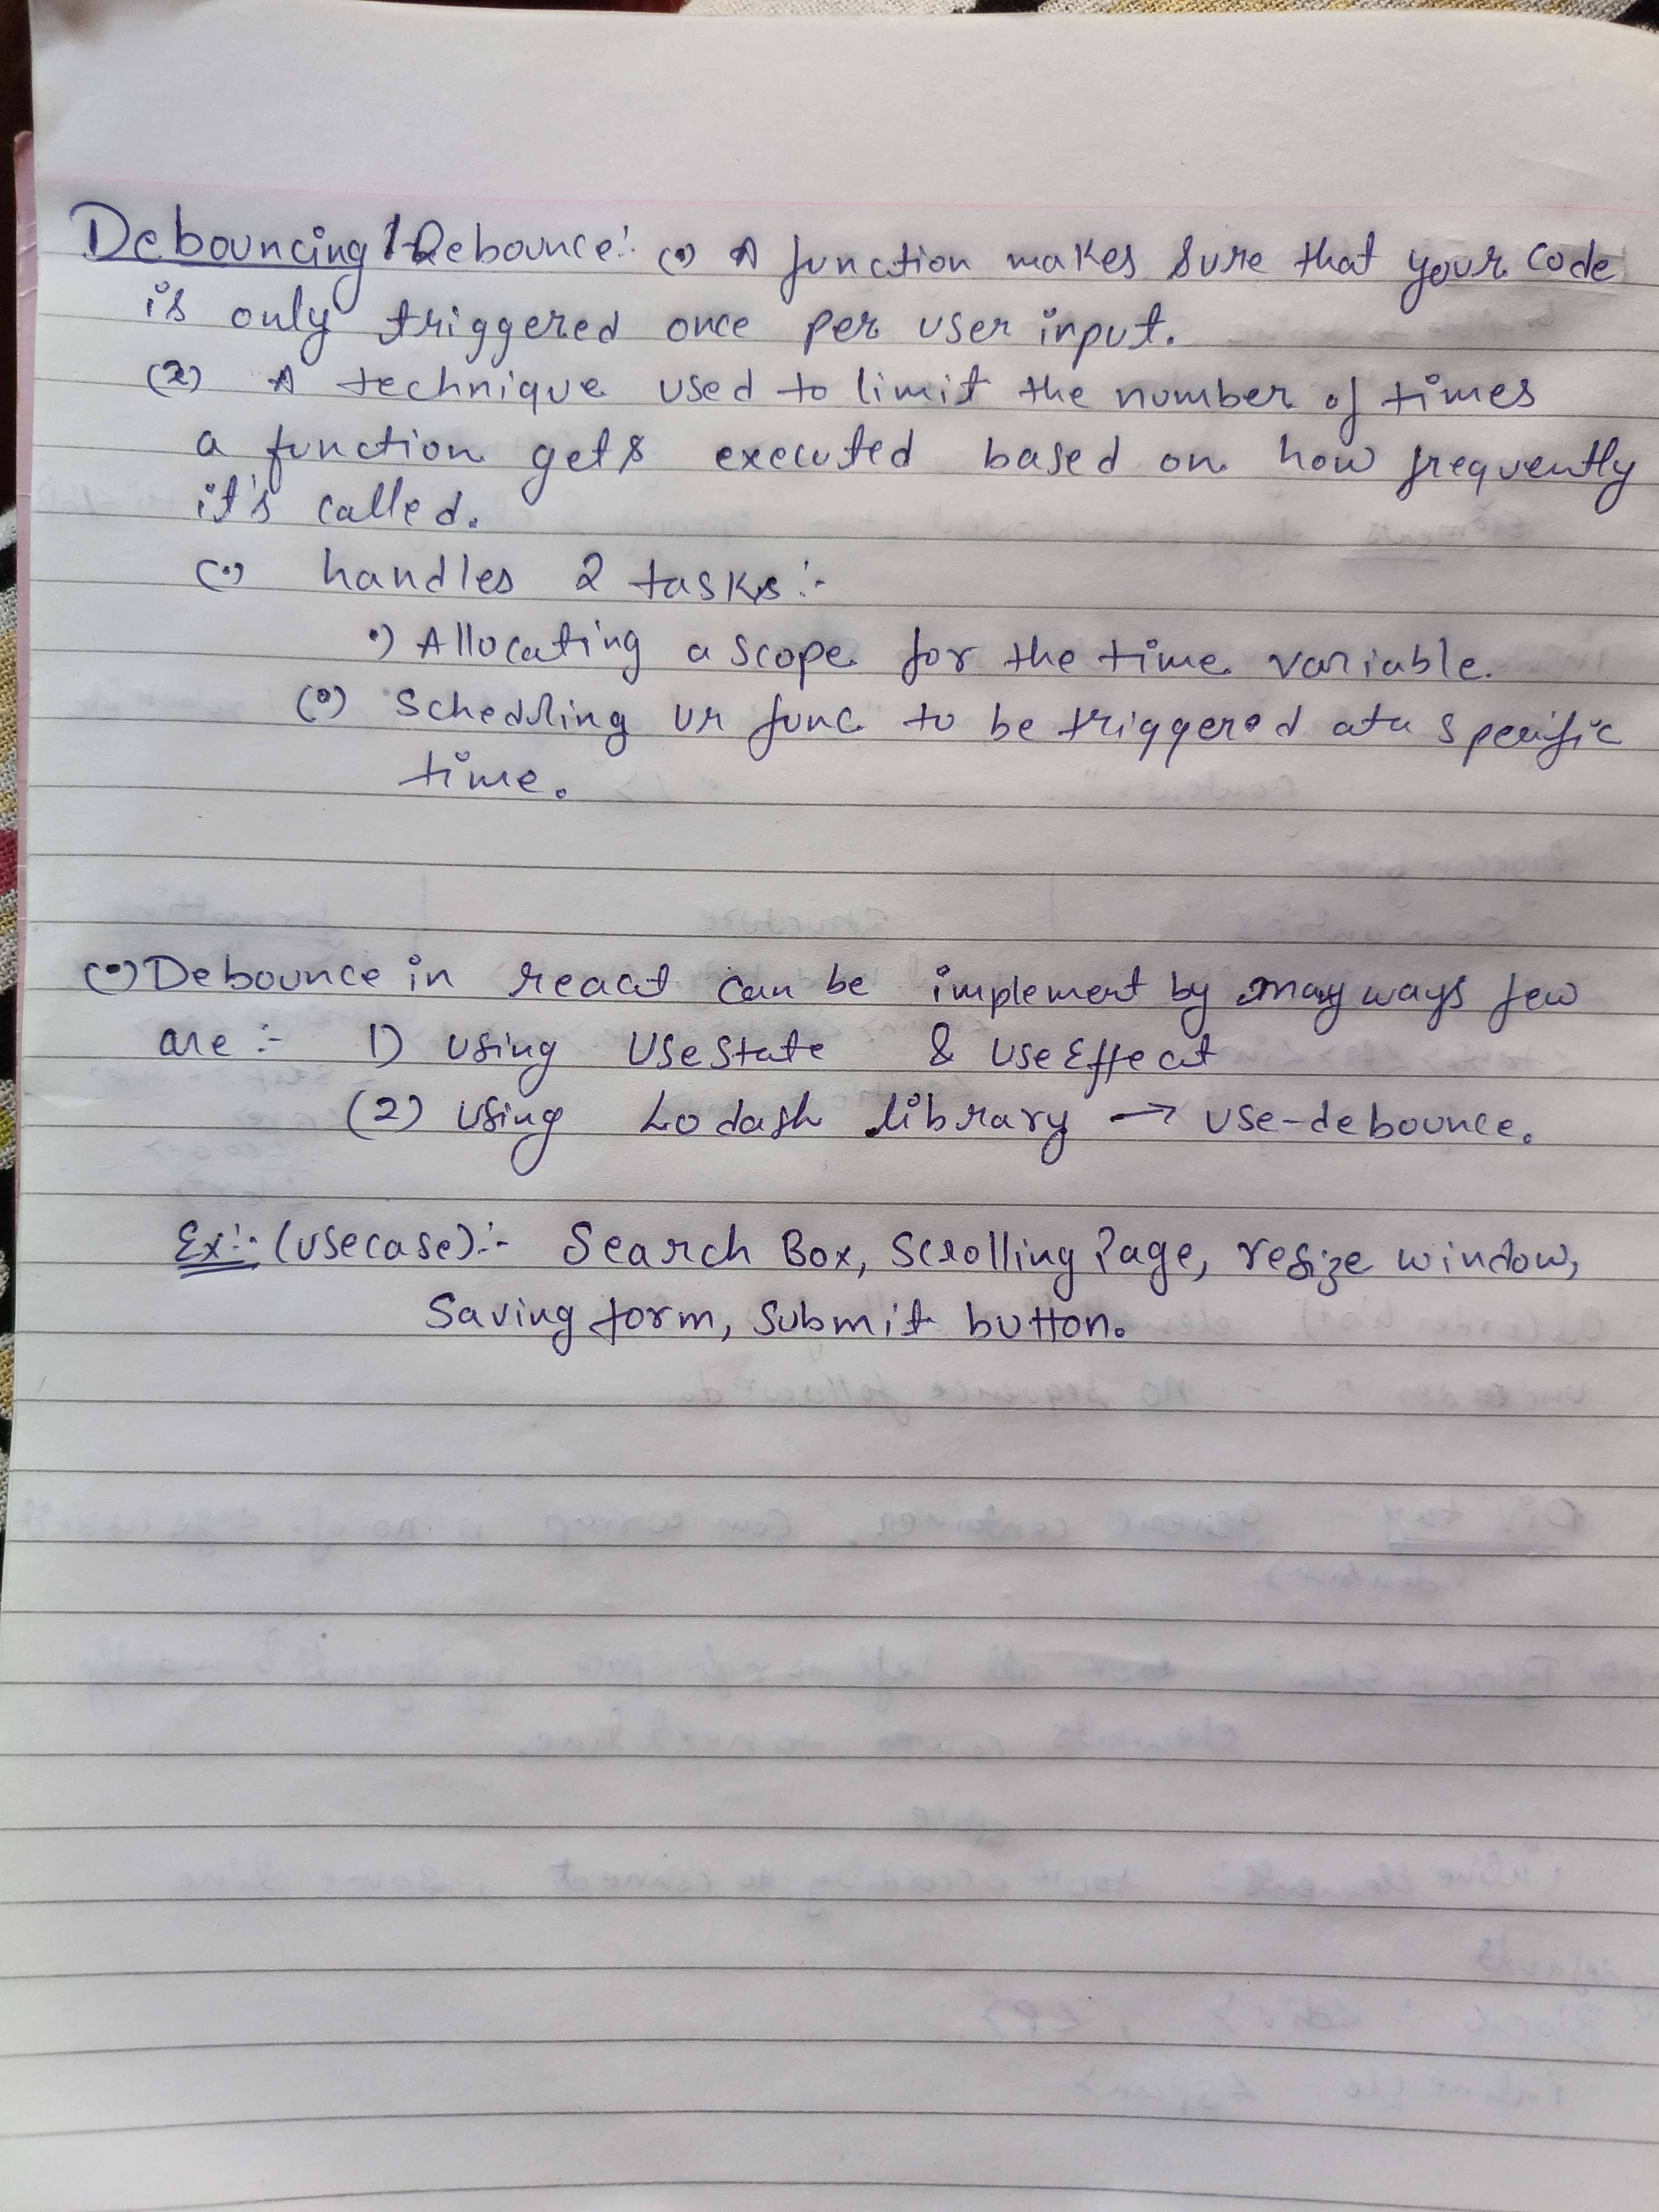 Debouncing / Debounce:- (•) A function makes sure that your code
is only triggered once per user input.
(2) A technique used to limit the number of times
a function gets executed based on how frequently
it's called.
(•) handles 2 tasks:-
•) Allocating a scope for the time variable.
(•) Scheduling ur func to be triggered at a specific
time.
(•) Debounce in react can be implement by many ways few
are :- 1) using UseState & UseEffect
(2) Using Lodash library → use-debounce.
Ex:- (usecase):- Search Box, Scrolling Page, resize window,
Saving form, Submit button.